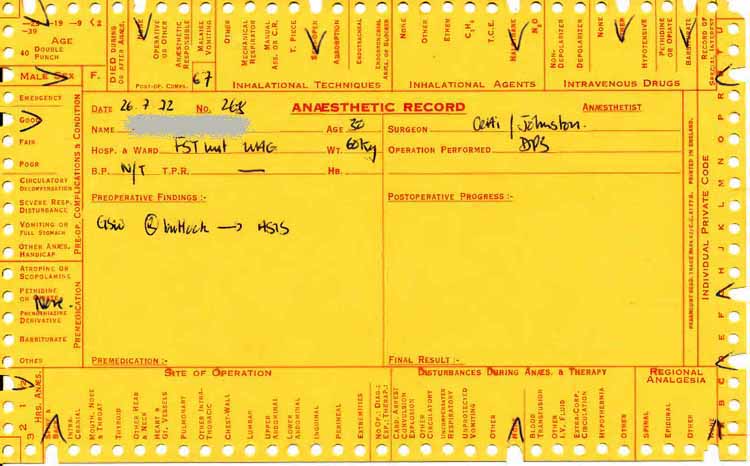 -29 -19 -9 <2
-39
40
AGE
DOUBLE
PUNCH
MALE SEX F.
DIED DURING
OR AFTER ANÆS.
NONE
OPERATIVE
OR OTHER
ANÆSTHETIC
RESPONSIBLE
MALAISE
VOMITING
OTHER
POST-OP. COMPS.
67
MECHANICAL
RESPIRATOR
MANUAL
ASS. OR C.R.
T. PIECE
ABSORPTION
ENDOTRACHEAL
INHALATIONAL TECHNIQUES
NONE
OTHER
ETHER
C₃H₆
T.C.E.
N₂O
INHALATIONAL AGENTS
NON-
DEPOLARIZER
DEPOLARIZER
NONE
OTHER
HYPOTENSIVE
PETHIDINE
OR OPIATE
BARBITURATE
INTRAVENOUS DRUGS
RECORD OF
SPECIAL INTEREST
EMERGENCY
GOOD
FAIR
POOR
CIRCULATORY
DECOMPENSATION
SEVERE RESP.
DISTURBANCE
VOMITING OR
FULL STOMACH
OTHER ANÆS.
HANDICAP
PRE-OP. COMPLICATIONS & CONDITION
ATROPINE OR
SCOPOLAMINE
PETHIDINE
OR OPIATE
None.
PHENOTHIAZINE
DERIVATIVE
BARBITURATE
OTHER
PREMEDICATION
DATE 26.7.72 NO. 268 ANÆSTHETIC RECORD ANÆSTHETIST
NAME AGE 30 SURGEON / Johnston.
HOSP. & WARD FST Unit WT. 60Kg OPERATION PERFORMED DPS
B.P. N/T T.P.R. — HB.
PREOPERATIVE FINDINGS :- POSTOPERATIVE PROGRESS :-
GSW Ⓡ buttock → ASIS
PREMEDICATION :- FINAL RESULT :-
PRINTED IN ENGLAND.
INDIVIDUAL PRIVATE CODE
A B C D E F H J K L M N O P R T U Y
HRS. ANÆS.
1 2 3
SITE OF OPERATION
INTRA-
CRANIAL
MOUTH, NOSE
& THROAT
THYROID
OTHER HEAD
& NECK
HEART &
GT. VESSELS
PULMONARY
OTHER INTRA-
THORACIC
CHEST-WALL
LUMBAR
UPPER
ABDOMINAL
LOWER
ABDOMINAL
INGUINAL
PERINEAL
EXTREMITIES
DISTURBANCES DURING ANÆS. & THERAPY
CARD. ARREST
CONVULSION
EXPLOSION
OTHER
CIRCULATORY
UNCOMPENSATED
RESPIRATORY
UNPROTECTED
VOMITING
OTHER
BLOOD
TRANSFUSION
OTHER
I.V. FLUID
EXTRA-CORP.
CIRCULATION
HYPOTHERMIA
OTHER
REGIONAL
ANALGESIA
SPINAL
EPIDURAL
OTHER